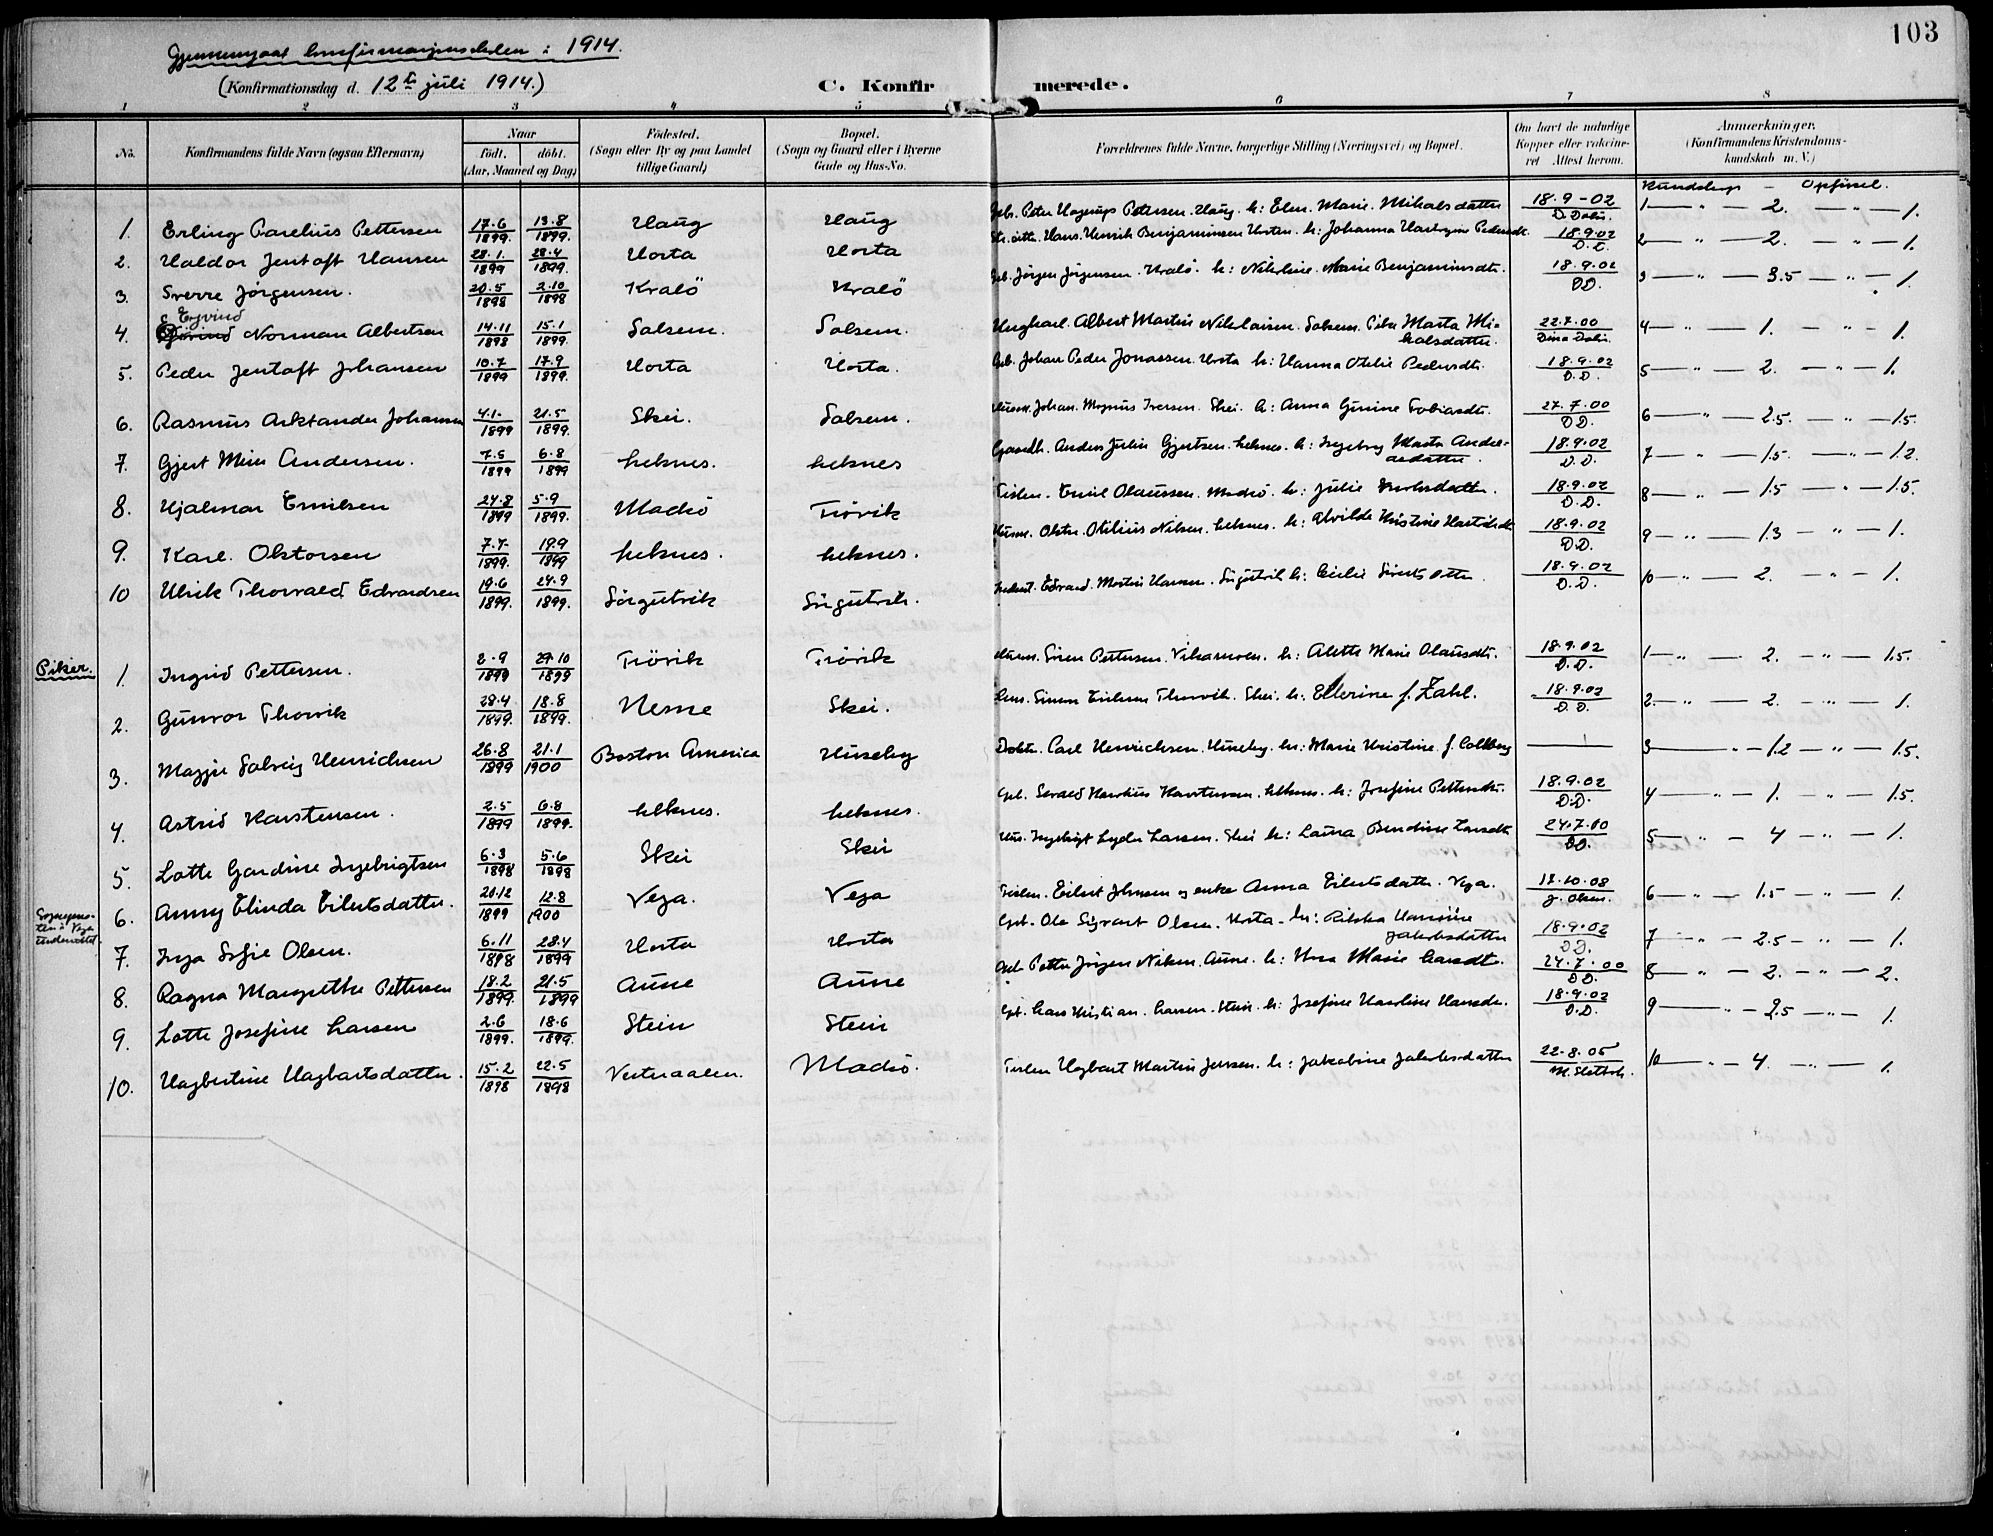 103
Gjennemgaat konfirmasjonsskolen i 1914.
(Konfirmationsdag d. 12te juli 1914.)
C. Konfirmerede.
1 2 3 4 5 6 7 8
No. Konfirmandens fulde Navn (ogsaa Efternavn) Naar født. døbt. (Aar, Maaned og Dag) Fødested. (Sogn eller By og paa Landet tillige Gaard) Bopæl. (Sogn og Gaard eller i Byerne Gade og Hus-No. Forældrenes fulde Navne, borgerlige Stilling (Næringsvei) og Bopæl. Om havt de naturlige Kopper eller vakcineret. Attest herom. Anmærkninger. (Konfirmandens Kristendomskundskab m. V.)
Kundskap - Opførsel.
1. Erling Parelius Pettersen 17.6 1899. 13.8 1899. Haug Haug Peter Petersen. Haug. h: Elen. Marie. Mihalsdatter 18.9-02 D. Dahn. 1 — " — 2. — " — 1.
2. Haldor Jentoft Hansen 28.1. 1899 28.4 1899 Horta Horta Hans. Henrik Benjaminsen Horten. h: Johanna Pedersdt. 18.9.02 D.D. 2 — " — 2. — " — 1.
3. Sverre Jørgensen. 20.5 1898 2.10 1898 Kralö Kralö Jørgen Jørgensen. Kralö. h: Nikoline. Marie Benjaminsdt. 18.9.02 DD. 3 — " — 3.5 — " — 1.
4. Ejvind Norman Albertsen 14.11 1898 15.1 1899. Salsem. Salsem. Ungkarl. Albert Martin Nikolaisen. Salsem. Pike Marta Mikalsdatter. 22.7.00 Dina Dahn. 4 — " — 1. — " — 1.
5. Peder Jentoft Johansen 10.7 1899 17.9 1899. Horta Horta. Johan Peder Jonassen. Horta h: Hanna Otelie Pedersdt. 18.9.02 D.D. 5 — " — 2. — " — 1.
6. Rasmus Arktander Johansen 4.1. 1899 21.5 1899. Skei. Salsem. Johan. Magnus Iversen. Skei. h: Anna Gurine Tobiasdt. 27.7.00 DD. 6 — " — 2.5. — " — 1.5.
7. Gjert Andersen. 7.5 1899 6.8 1899 Leknes. Leknes Gaardb. Anders Julin Gjertsen. Leknes. h: Ingeborg Marta Andreasdatter. 18.9.02 D.D. 7 — " — 1.5. — " — 1.2.
8. Hjalmar Emilsen 24.8 1899 5.9 1899. Madsö Tiövik Emil Olaussen. Madsö. h: Julie 18.9.02 D.D. 8 — " — 1.5 — " — 1.5.
9. Karl. Oktorsen 7.7. 1899. 19.9 1899 Leknes. Leknes. Otilius Nilsen. Leknes. h: Alvilde Kristine 18.9.02 D.D. 9 — " — 1.3 — " — 1.
10 Ulrik Thorvald Edvardsen 19.6 1899. 24.9 1899. Sörgutvik Sörgutvik. Edvard. Martin Hansen. Sörgutvik h: Cecilie Siverts Datter. 18.9.02 D.D. 10 — " — 2. " — 1.
Piker.
1. Ingrid Pettersen. 2.9 1899 29.10 1899 Tiövik Tiövik Sören Pettersen. h: Alette Marie Olausdt. 18.9.02 D.D. 1 — " — 2. — " — 1.5.
2. Gunvor Thorvik 28.4 1899. 18.8 1899. Nesne Skei. Simon Thorvik. Skei. h: Ellerine f. Zahl. 18.9.02 D.D. 2. — " — 2. — " — 1.
3. Solveig Henrichsen 26.8 1899 21.1 1900 Boston America Huseby Dokter. Carl Henrichsen. Huseby. h: Marie Kristine f. — 3 — " — 1.2 — " — 1.5.
4. Astrid Karstensen. 2.5 1899 6.8 1899. Leknes. Leknes. Karstensen. Leknes. h: Josefine Pettersdt. 18.9.02 D.D. 4 — " — 1. — " — 1.5.
5. Lotte Gardine Ingebrigtsen 6.3 1898 5.6 1898 Skei Skei Ingebrigt Larsen. Skei h: Laura Bendine Larsdt. 24.7.00 DD. 5 — " — 4 — " — 1.
6. Anny Elinda Eilertsdatter. 20.12 1899 12.8 1900 Vega. Vega Eilert Johnsen og enke Anna Eilertsdatter. Vega. 12.10.08 J. Olsen. 6 — " — 1.5 — " — 1.
7. Inga Sofie Olsen. 6.11 1898 28.4 1899 Horta Horta Ole Sigvart Olsen. Horta. h: Jakobsdatter 18.9.02 DD. 7 — " — 2.5 — " — 1.
8. Ragna Margrethe Pettersen 18.2 1899. 21.5 1899 Aune Aune Petter Jörgen Nilsen. Aune. h: Marie Larsdt. 24.7.00 DD. 8 — " — 2. — " — 2.
9. Lotte Josefine Larsen 2.6 1899. 18.6 1899. Stein Stein Lars Kristian. Larsen. Stein. h: Josefine Karoline Hansdt. 18.9.02 D.D. 9 — " — 2.5 — " — 1.
10. Hagbertine Hagbartsdatter. 15.2 1898 22.5 1898 Vesteraalen. Madsö. Hagbart Martin Jensen. h: Jakobine Jakobsdatter 22.8.05 10 — " — 4. — " — 1.